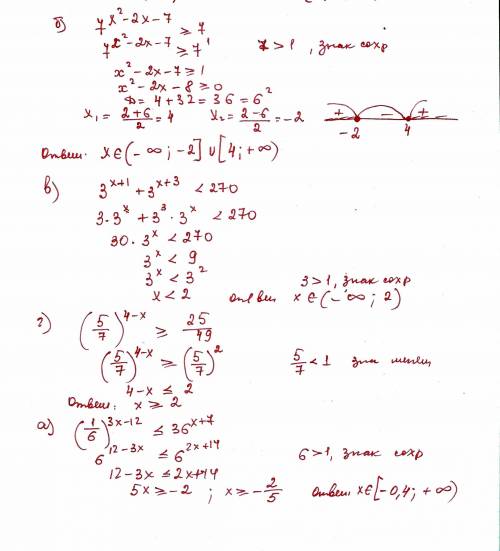 б) 7^(x²-2x-7) ≥ 7
7^(x²-2x-7) ≥ 7¹ 7 > 1, знак сохр
x²-2x-7 ≥ 1
x²-2x-8 ≥ 0
D = 4+32 = 36 = 6²
x₁ = (2+6)/2 = 4 x₂ = (2-6)/2 = -2 + - + -2 4
Ответ: x∈(-∞; -2] ∪ [4; +∞)
в) 3^(x+1) + 3^(x+3) < 270
3·3^x + 3³·3^x < 270
30·3^x < 270
3^x < 9
3^x < 3² 3 > 1, знак сохр
x < 2 Ответ x∈(-∞; 2)
г) (5/7)^(4-x) ≥ 25/49
(5/7)^(4-x) ≥ (5/7)² 5/7 < 1 знак меняем
4-x ≤ 2
Ответ: x ≥ 2
а) (1/6)^(3x-12) ≤ 36^(x+7)
6^(12-3x) ≤ 6^(2x+14) 6 > 1, знак сохр
12-3x ≤ 2x+14
5x ≥ -2; x ≥ -2/5 Ответ x∈[-0,4; +∞)